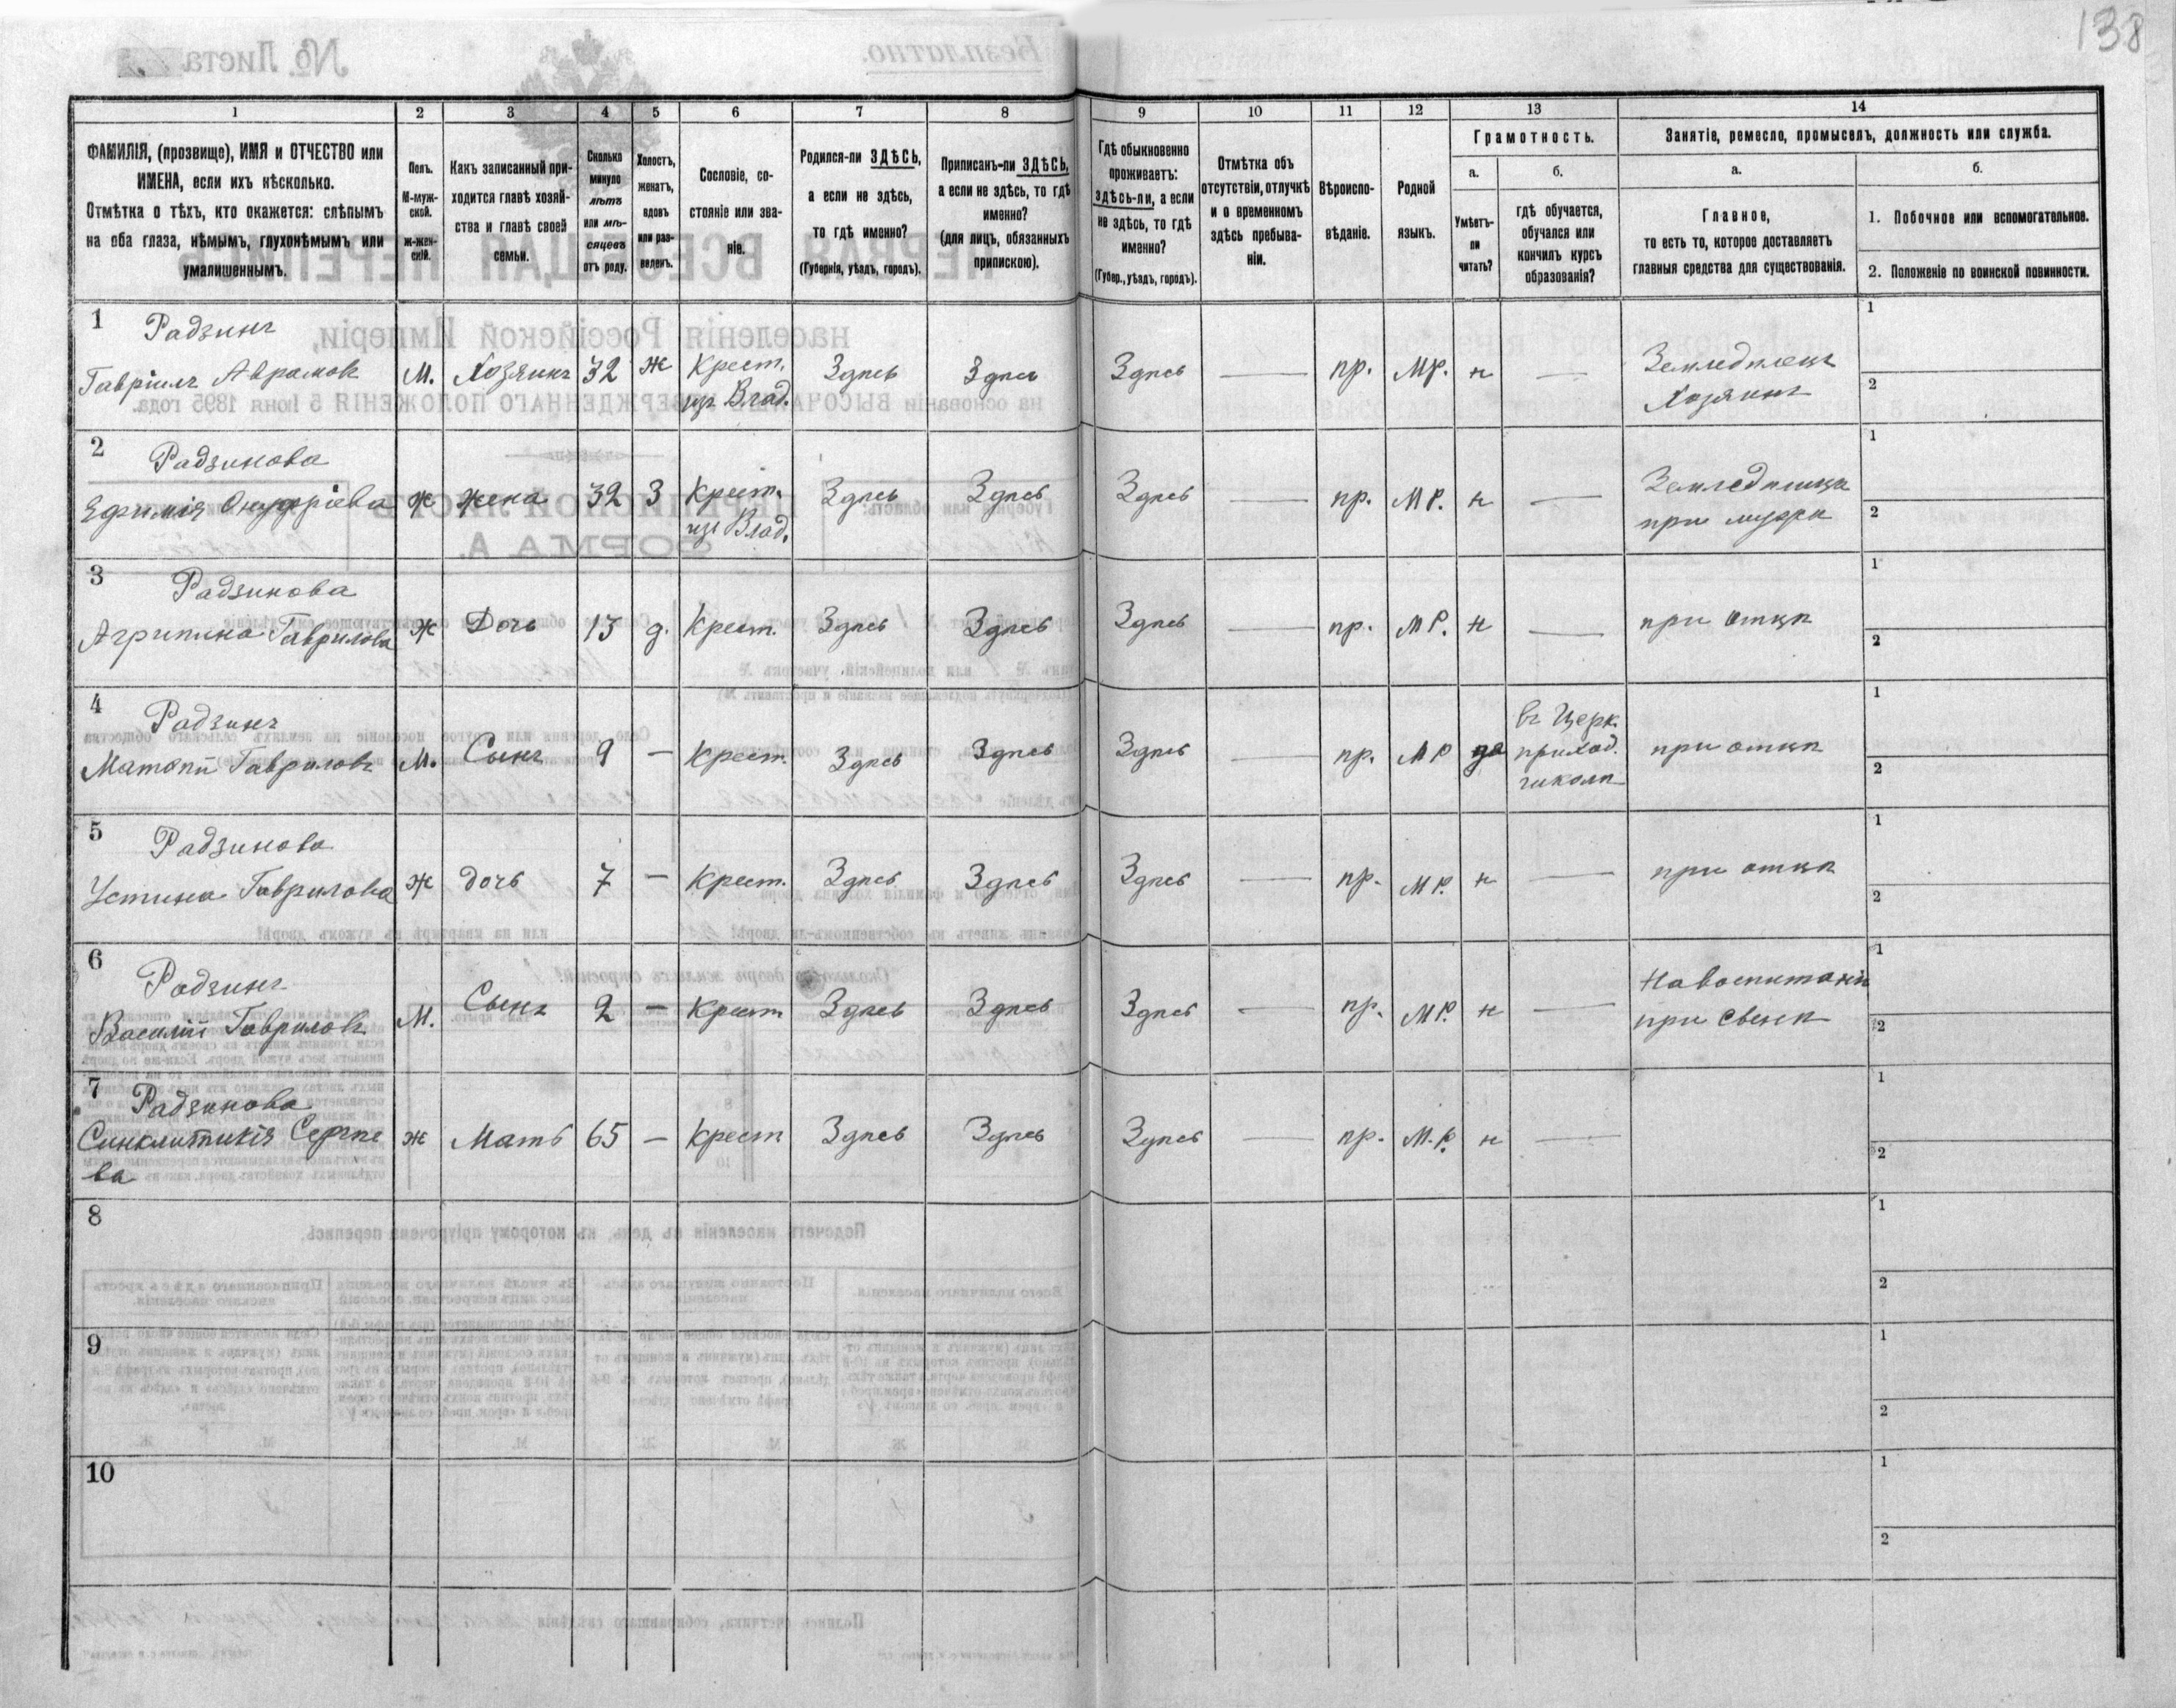 138
1 2 3 4 5 6 7 8 9 10 11 12 13 14
ФАМИЛІЯ, (прозвище), ИМЯ и ОТЧЕСТВО или
ИМЕНА, если ихъ нѣсколько.
Отмѣтка о тѣхъ, кто окажется: слѣпымъ
на оба глаза, нѣмымъ, глухонѣмымъ или
умалишеннымъ.
Полъ.
М-муж-
ской.
ж-жен-
скій.
Какъ записанный при-
ходится главѣ хозяй-
ства и главѣ своей
семьи.
Сколько
минуло
лѣтъ
или мѣ-
сяцевъ
отъ роду.
Холостъ,
женатъ,
вдовъ
или раз-
веденъ.
Сословіе, со-
стояніе или зва-
ніе.
Родился-ли ЗДѢСЬ,
а если не здѣсь,
то гдѣ именно?
(Губернія, уѣздъ, городъ).
Приписанъ-ли ЗДѢСЬ,
а если не здѣсь, то гдѣ
именно?
(для лицъ, обязанныхъ
припискою).
Гдѣ обыкновенно
проживаетъ:
здѣсь-ли, а если
не здѣсь, то гдѣ
именно?
(Губер., уѣздъ, городъ).
Отмѣтка объ
отсутствіи, отлучкѣ
и о временномъ
здѣсь пребыва-
ніи.
Вѣроиспо-
вѣданіе.
Родной
языкъ.
Грамотность.
а.
Умѣетъ-
ли
читать?
б.
гдѣ обучается,
обучался или
кончилъ курсъ
образованія?
Занятіе, ремесло, промыселъ, должность или служба.
а.
Главное,
то есть то, которое доставляетъ
главныя средства для существованія.
б.
1. Побочное или вспомогательное.
2. Положеніе по воинской повинности.
1 Радзинъ
Гавріилъ Аврамовъ М. Хозяинъ 32 ж Крест. Здѣсь Здѣсь Здѣсь — пр. МР. н — Земледѣлецъ 1
изъ Влад. Хозяинъ 2
2 Радзинова
Ефимія Онуфріева Ж жена 32 З Крест. Здѣсь Здѣсь Здѣсь — пр. МР. н — Земледѣлица 1
изъ Влад. при мужѣ 2
3 Радзинова
Агрипина Гаврилова Ж Дочь 13 д. Крест. Здѣсь Здѣсь Здѣсь — пр. МР. н — при отцѣ 1
2
4 Радзинъ
Матѳѣй Гавриловъ М. Сынъ 9 — Крест. Здѣсь Здѣсь Здѣсь — пр. МР да въ Церк. при отцѣ 1
приход.
школѣ 2
5 Радзинова
Устина Гаврилова Ж дочь 7 — Крест. Здѣсь Здѣсь Здѣсь — пр. МР. н — при отцѣ 1
2
6 Радзинъ
Василій Гавриловъ М. Сынъ 2 — Крест Здѣсь Здѣсь Здѣсь — пр. МР. н — 1
2
7 Радзинова
Синклитикія Сергѣе ж Мать 65 — Крест Здѣсь Здѣсь Здѣсь — пр. М.Р. н — 1
ва 2
8 1
2
9 1
2
10 1
2